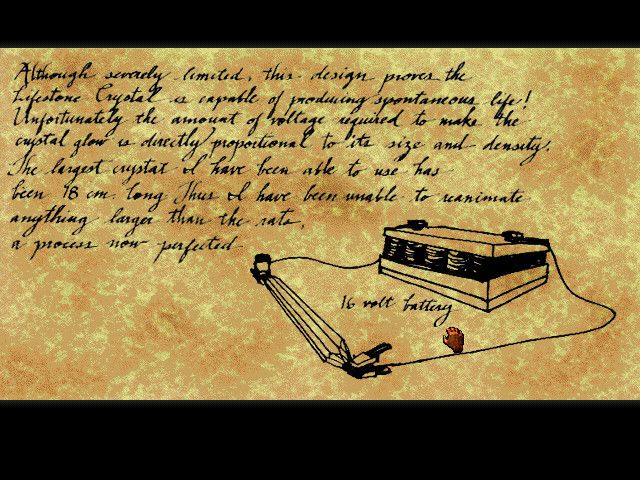 Although severely limited, this design proves the
Lifestone Crystal is capable of producing spontaneous life!
Unfortunately the amount of voltage required to make the
crystal glow is directly proportional to its size and density.
The largest crystal I have been able to use has
been 18 cm long Thus I have been unable to reanimate
anything larger than the rats,
a process now perfected
16 volt battery